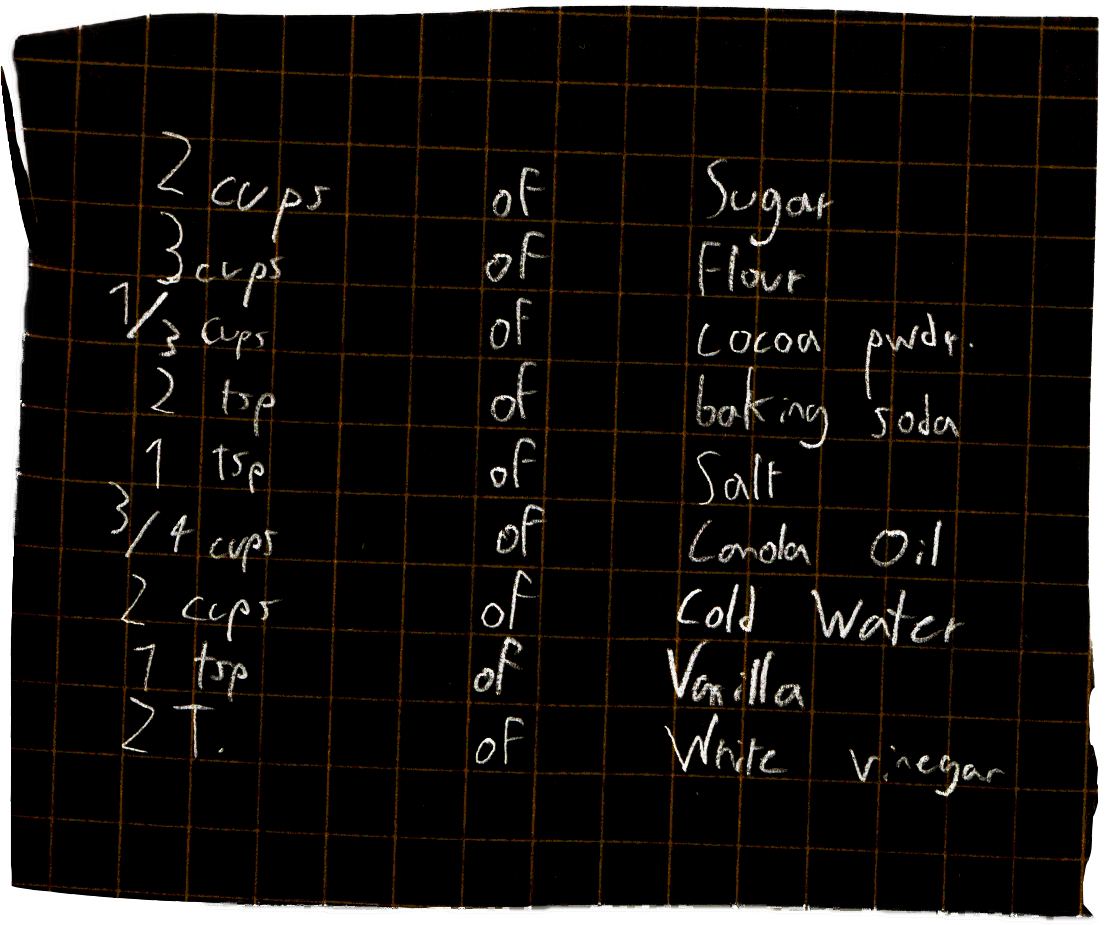 2 cups of Sugar
3 cups of Flour
1/3 cups of cocoa pwdr.
2 tsp of baking soda
1 tsp of Salt
3/4 cups of Canola Oil
2 cups of Cold Water
1 tsp of Vanilla
2 T. of White vinegar